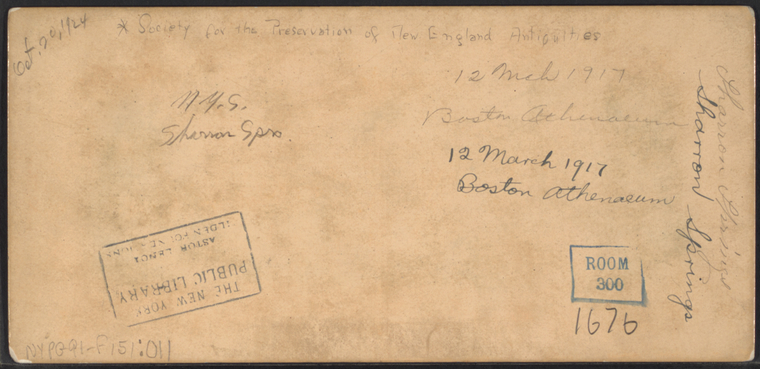 Oct. 20, 1924
* Society for the Preservation of New England Antiquities
12 Mch 1917
Boston Athenaeum
N.Y.S.
Sharron Sprs.
12 March 1917
Boston Athenaeum
Sharron Springs
Sharron Springs
THE NEW YORK
PUBLIC LIBRARY
ASTOR, LENOX
TILDEN FOUNDATIONS
ROOM
300
1676
NYPG91-F151:011